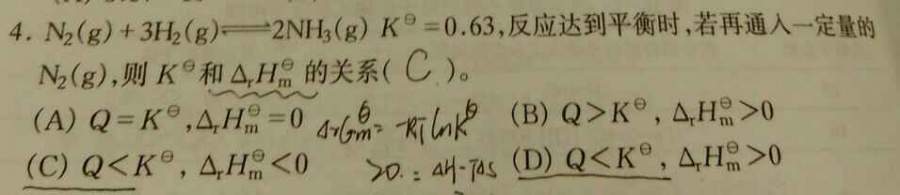 4. N₂(g)+3H₂(g)⇌2NH₃(g) K^⊖=0.63,反应达到平衡时,若再通入一定量的
N₂(g),则 K^⊖和 ΔrHm^⊖ 的关系( C )。
(A) Q=K^⊖,ΔrHm^⊖=0 ΔrGm^θ=-RTlnK^θ (B) Q>K^⊖, ΔrHm^⊖>0
(C) Q<K^⊖, ΔrHm^⊖<0 >0.=ΔH-TΔS (D) Q<K^⊖, ΔrHm^⊖>0